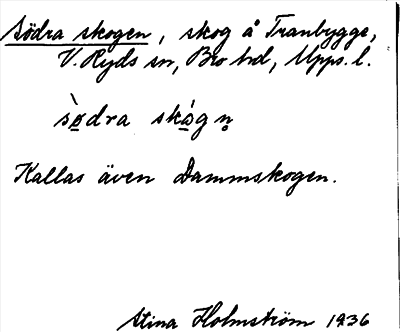 Södra skogen, skog å Tranbygge,
V. Ryds sn, Bro hd, Upps. l.
sø̀dra skó̱gn̥
Kallas även Dammskogen.
Stina Holmström 1936